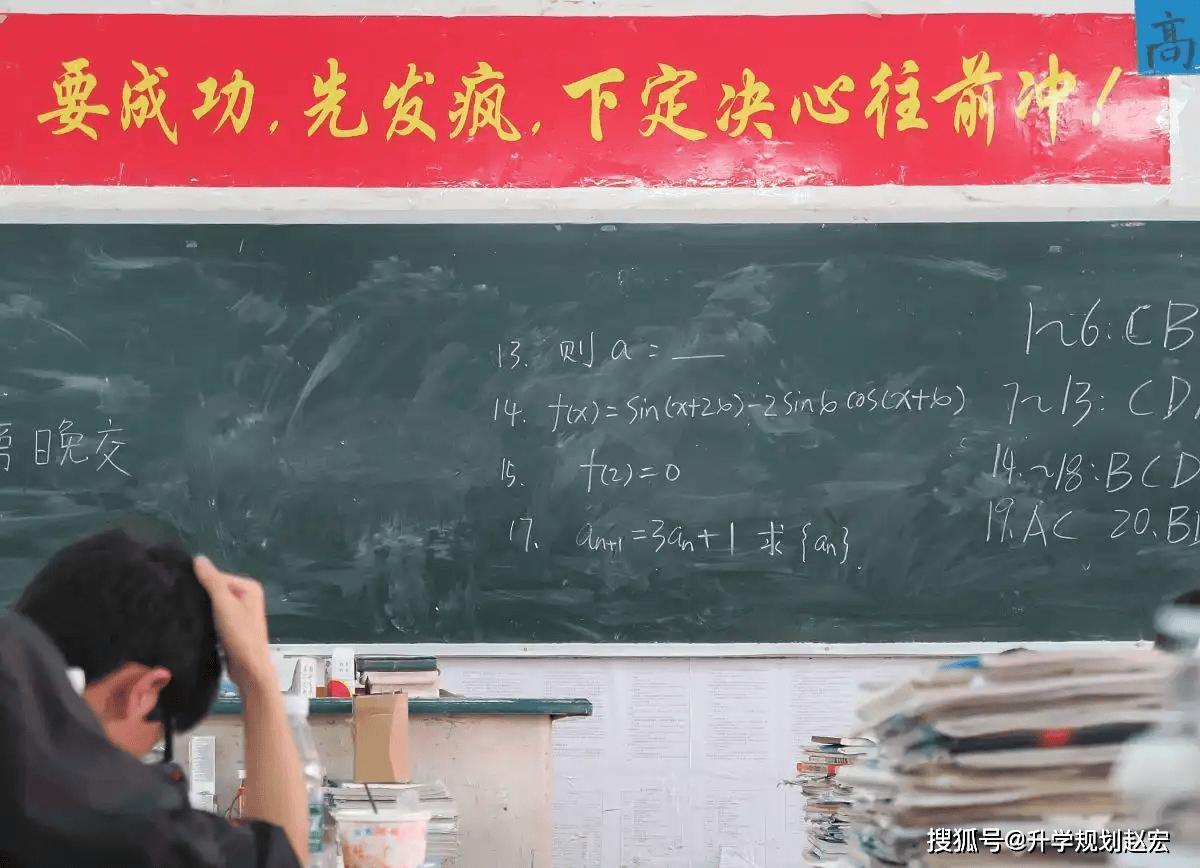 要成功,先发疯,下定决心往前冲!
高
13. 则 a = ___
14. f(x)=sin(x+2b)-2sinb cos(x+b)
15. f(2)=0
17. aₙ₊₁=3aₙ+1 求{aₙ}.
日晚交
1~6:CB
7~13:CD
14.~18:BCD
19.AC 20.B
搜狐号@升学规划赵宏